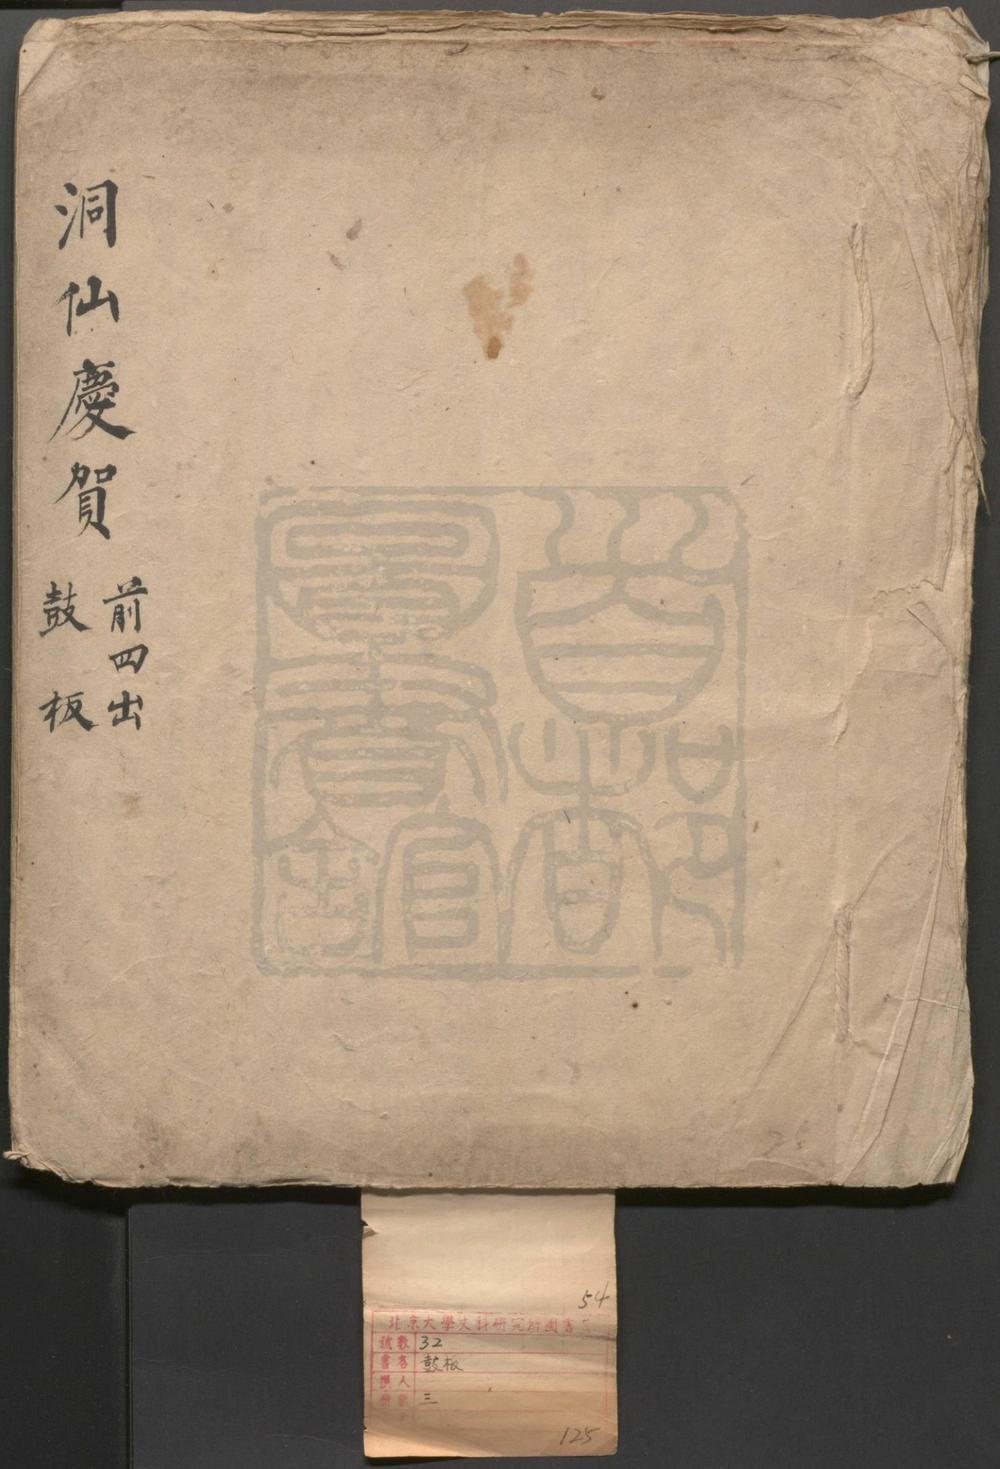 洞仙慶賀
前四出
鼓板
首都
圖書館
54
北京大學文科研究所圖書
號數 32
書名 鼓板
撰人
冊數 三
125